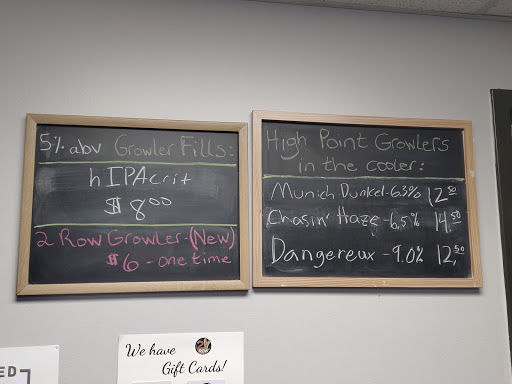 5% abv Growler Fills:
hIPAcrit
$8.00
2 Row Growler-(New)
$6 - one time
High Point Growlers
in the cooler:
Munich Dunkel-6.3% 12.50
Chasin' Haze -6.5% 14.50
Dangereux - 9.0% 12.50
We have
Gift Cards!
ED